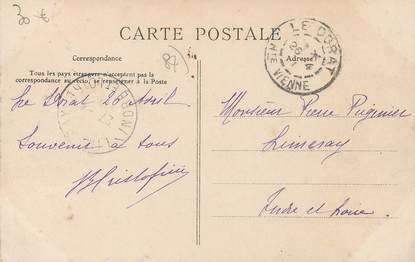 30 €
CARTE POSTALE
Correspondance
Tous les pays étrangers n'acceptent pas la
correspondance au recto, se renseigner à la Poste.
87
Le Dorat 26 Avril
Souvenir à tous
Adresse
LE DORAT
HTE VIENNE
Monsieur Pierre
Limeray
Indre et Loire